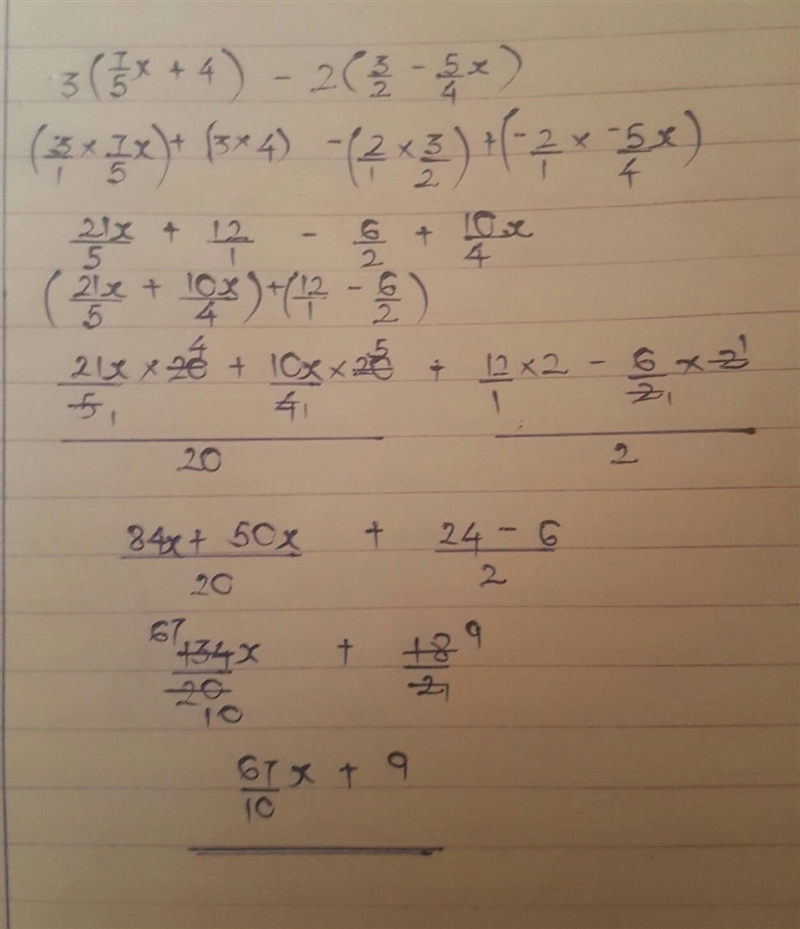 3(7/5x + 4) - 2(3/2 - 5/4x)
(3/1 × 7/5x) + (3×4) - (2/1 × 3/2) + (-2/1 × -5/4x)
21x/5 + 12/1 - 6/2 + 10x/4
(21x/5 + 10x/4) + (12/1 - 6/2)
21x/5 1 × 20 4 + 10x/4 1 × 20 5 + 12/1 × 2 - 6/2 1 × 2 1
20 2
84x + 50x/20 + 24 - 6/2
67 134x/20 10 + 18 9/2 1
67/10x + 9